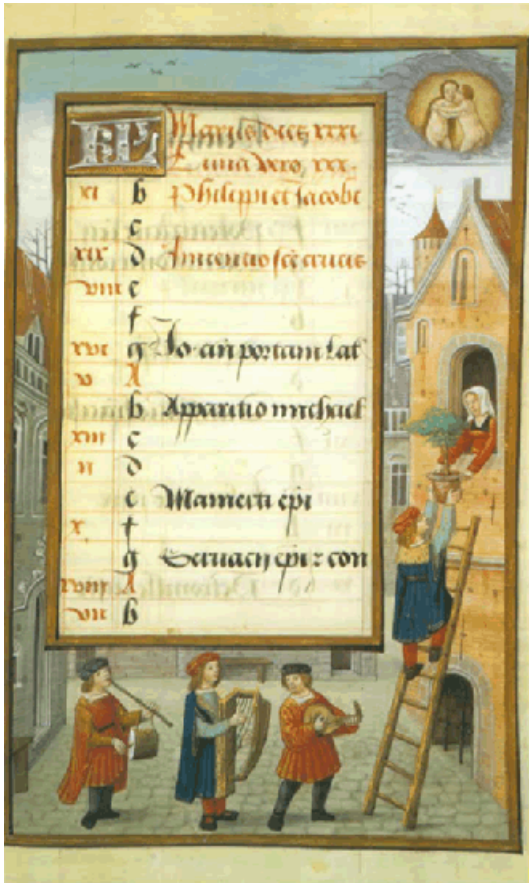 KL Maius habet dies xxxi
Luna vero xxx
xi b Philippi et Jacobi
c
xix d Inventio sce crucis
viii e
f
xvi g Jo an portam lat
v A
b Apparitio michael
xiii c
ii d
e Mamerti epi
x f
g Servacii epi z con
xviii A
vii b